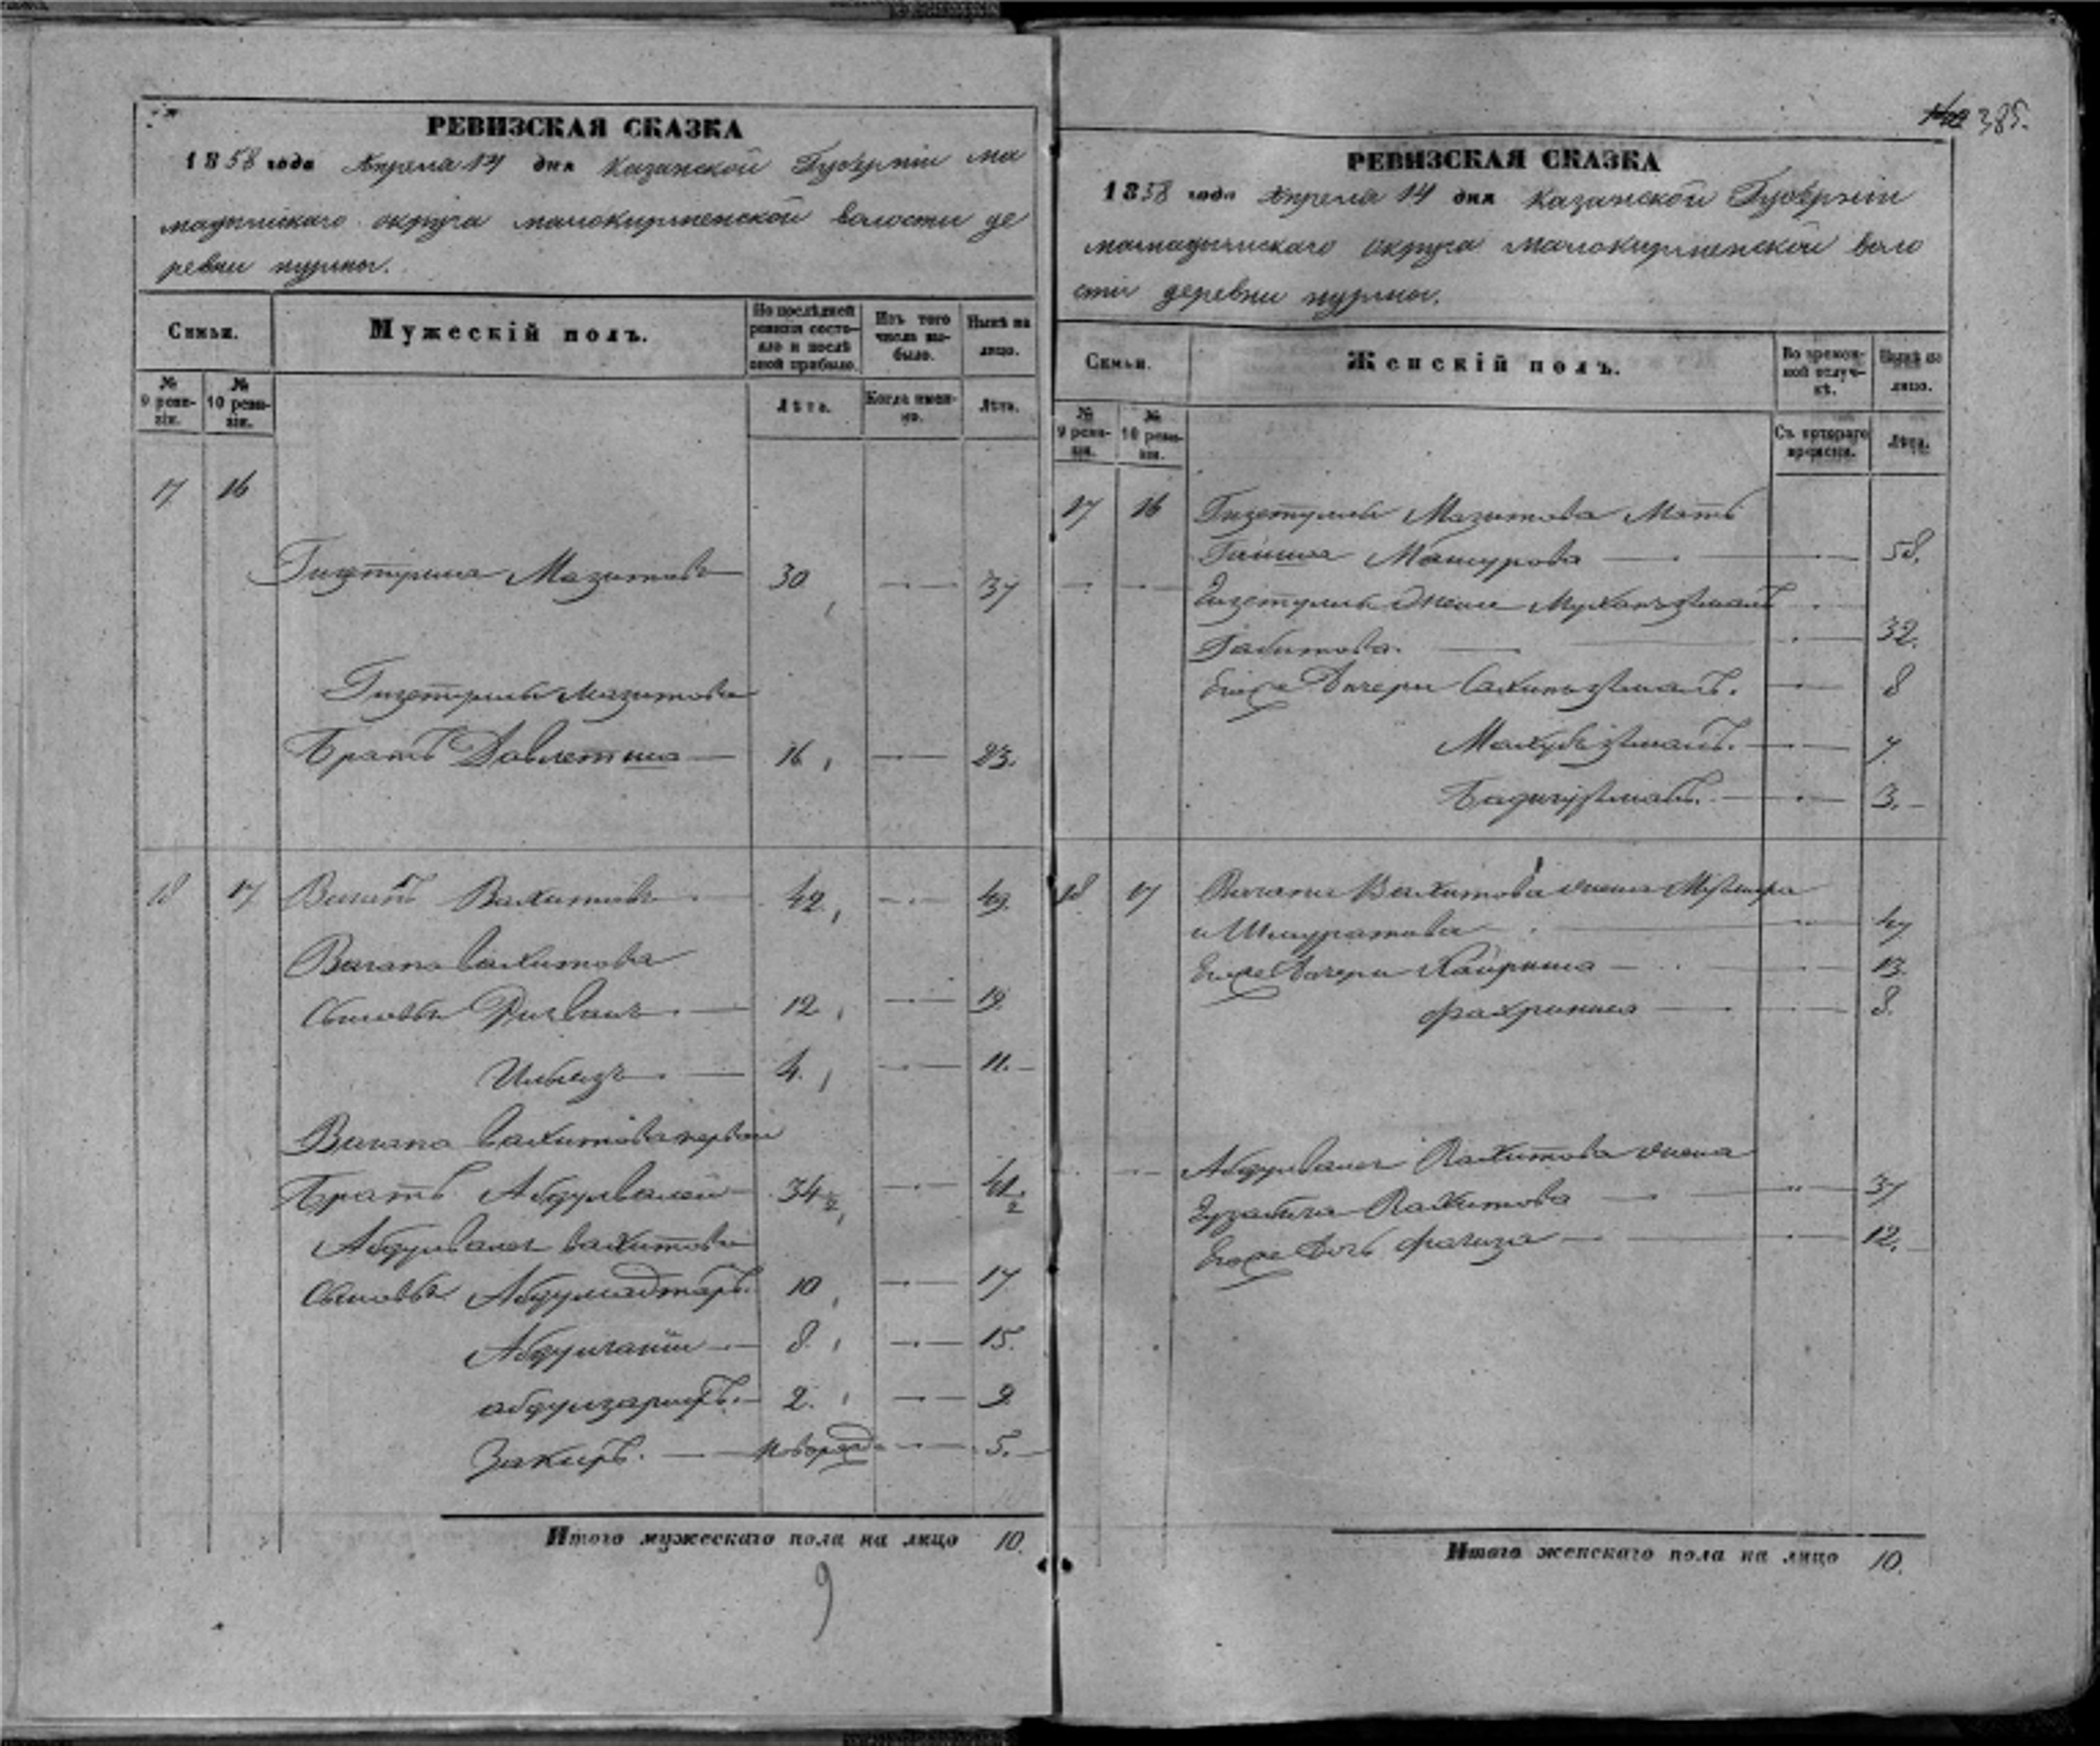 РЕВИЗСКАЯ СКАЗКА
1858 года Апреля 14 дня Казанской Губерніи ма
мадышскаго округа малокирменской волости де
ревни нурмы.
Семьи.
Мужескій полъ.
По последней ревизіи состояло и после оной прибыло.
Изъ того числа выбыло.
Ныне на лицо.
№ 9 ревизіи.
№ 10 ревизіи.
Лѣта.
Когда именно.
Лѣта.
17 16
Гизетулла Мазитовъ 30 37
Гизетуллы Мазитова
Братъ Давлетша 16 23.
18 17 Вагапъ Вахитовъ 42 49.
Вагапа Вахитова
Сыновья Ризванъ 12 19.
Ильязъ 4. 11.
Вагапа Вахитова первой
Братъ Абдулвалей 34 1/2 41 1/2
Абдулвалея Вахитова
Сыновья 10 17
Абдулганій 8 15.
абдулзарифъ. 2. 9
Закиръ. новорожд 5.
Итого мужескаго пола на лицо 10.
9
385.
РЕВИЗСКАЯ СКАЗКА
1858 года Апреля 14 дня Казанской Губерніи
мамадышскаго округа малокирменской воло
сти деревни нурмы.
Семьи.
Женскій полъ.
Во временной отлучкѣ.
Ныне на лицо.
№ 9 ревизіи.
№ 10 ревизіи.
Съ котораго времени.
Лѣта.
17 16 Гизетуллы Мазитова Мать
Гайша Мансурова 58.
Гизетуллы Жена
Габитова. 32.
Его же Дочери 8
7
3.
18 17 Вагапа Вахитова жена
Ишмуратова 47
Его же Дочери Хайриниса 13.
Фахриниса 8.
Абдулвалея Вахитова жена
Гузабига Вахитова 37
Его же Дочь Фагиза 12.
Итого женскаго пола на лицо 10.